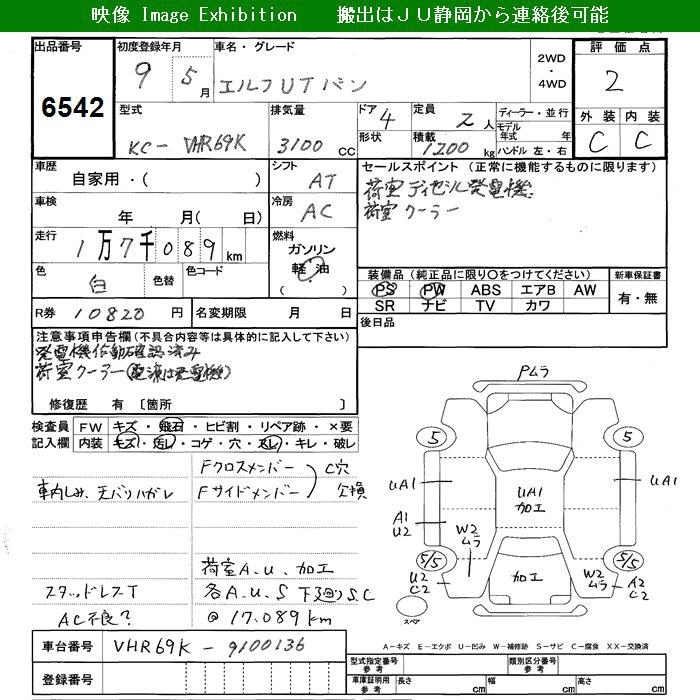 映像 Image Exhibition　搬出はＪＵ静岡から連絡後可能
出品番号
6542
初度登録年月
9 5月
車名・グレード
エルフUTバン
2WD
・
4WD
評価点
2
外装 内装
C C
型式
KC-VHR69K
排気量
3100 CC
ドア 4
形状
定員 2人
積載 1200 kg
ディーラー・並行
モデル年式 年
ハンドル 左・右
車歴
自家用・( )
シフト
AT
セールスポイント (正常に機能するものに限ります)
荷室 ディーゼル発電機
荷室 クーラー
車検
年 月( 日)
冷房
AC
走行
1万7千089km
燃料
ガソリン
軽油
( ・ )
色
白
色替
色コード
装備品 (純正品に限り○をつけてください)
PS PW ABS エアB AW
SR ナビ TV カワ
新車保証書
有・無
R券 10820 円
名変期限 月 日
後日品
注意事項申告欄(不具合内容等は具体的に記入して下さい)
発電機作動確認済み
荷室クーラー(電源は発電機)
修復歴 有 〔箇所 〕
検査員記入欄
FW キズ・飛石・ヒビ割・リペア跡・×要
内装 キズ・汚レ・コゲ・穴・スレ・キレ・破レ
Fクロスメンバー
Fサイドメンバー
C穴
交換
車内しみ、天バリハガレ
荷室A.U.加工
スタッドレスT
各A.U.S 下廻りS.C
AC不良?
@17.089km
Pムラ
5 5
UA1
UA1
加工
UA1
A1
U2
W2
ムラ
5/5
5/5
U2
C2
加工
W2
ムラ
A2
C2
スペア
A-キズ E-エクボ U-凹み W-補修跡 S-サビ C-腐食 XX-交換済
車台番号
VHR69K-9100136
登録番号
型式指定番号
参考
類別区分番号
参考
車庫証明用
参考
長さ cm
幅 cm
高さ cm